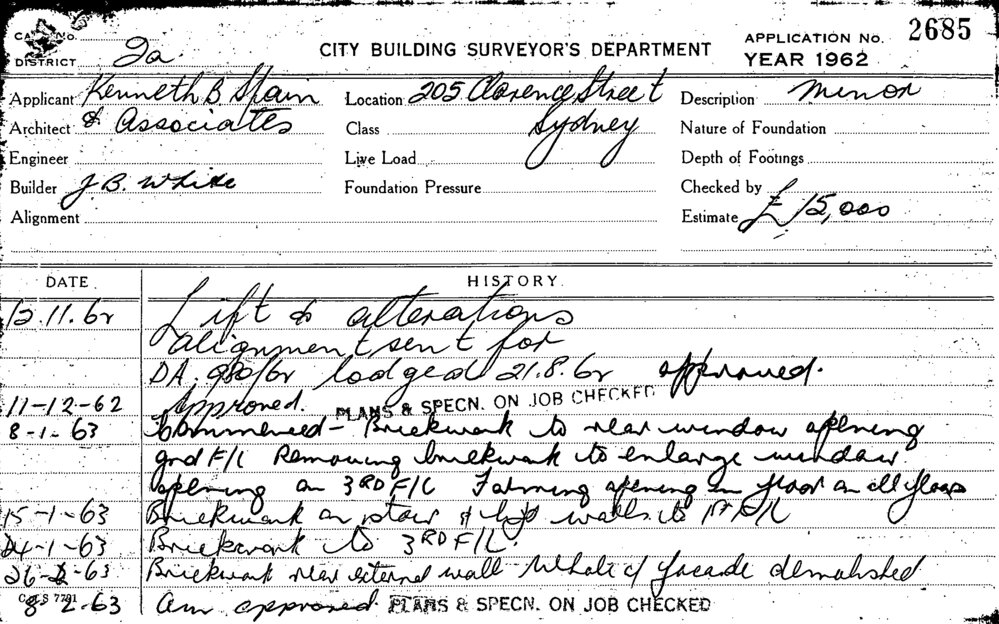 CARD No.
DISTRICT 2a
CITY BUILDING SURVEYOR'S DEPARTMENT
APPLICATION No. 2685
YEAR 1962
Applicant Kenneth B. Spain
Architect & Associates
Engineer
Builder J.B. White
Alignment
Location 205 Clarence Street
Class Sydney
Live Load
Foundation Pressure
Description Minor
Nature of Foundation
Depth of Footings
Checked by
Estimate £15,000
DATE HISTORY
12.11.62 Lift & alterations
alignment sent for
DA. 980/62 lodged 21.8.62 approved.
11-12-62 Approved. PLANS & SPECN. ON JOB CHECKED
8-1-63 Commenced - Brickwork to rear window opening
grd F/L Removing brickwork to enlarge window
opening on 3RD F/L Forming opening in floor on all floors
15-1-63 Brickwork on stair & lift walls to 1st F/L
24-1-63 Brickwork to 3RD F/L.
26-2-63 Brickwork rear external wall Whole of facade demolished
8 2-63 am approved PLANS & SPECN. ON JOB CHECKED